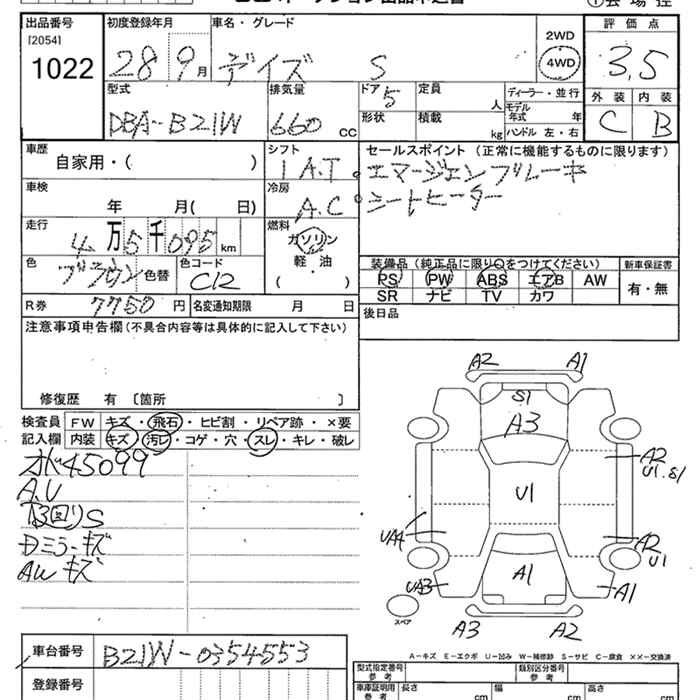 出品番号
[2054]
1022
初度登録年月
28 9 月
車名・グレード
デイズ S
2WD
4WD
評価点
3.5
型式
DBA-B21W
排気量
660 cc
ドア
5
形状
定員
人
積載
kg
ディーラー・並行
モデル年式 年
ハンドル 左・右
外装 内装
C B
車歴
自家用・( )
シフト
I A.T
セールスポイント (正常に機能するものに限ります)
○エマージェンブレーキ
○シートヒーター
車検
年 月( 日)
冷房
A.C
走行
4万5千095 km
燃料
ガソリン
軽・油
( )
色
ブラウン 色替
色コード
C12
装備品 (純正品に限り○をつけてください)
PS PW ABS エアB AW
SR ナビ TV カワ
新車保証書
有・無
R券
7750 円
名変通知期限 月 日
後日品
注意事項申告欄 (不具合内容等は具体的に記入して下さい)
修復歴 有 〔箇所 〕
検査員記入欄
FW キズ・飛石・ヒビ割・リペア跡・×要
内装 キズ・汚レ・コゲ・穴・スレ・キレ・破レ
45099
A.U
S
Dミラーキズ
AW キズ
A2 A1
S1
A3
A2
U1.S1
U1
UA4
A2
U1
UA3
A1
A1
スペア
A3 A2
A-キズ E-エクボ U-凹み W-補修跡 S-サビ C-腐食 ××-交換済
車台番号
B21W-0354553
登録番号
型式指定番号
参考
類別区分番号
参考
車庫証明用
参考
長さ cm
幅 cm
高さ cm